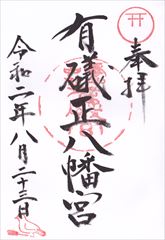 奉拝
有礒正八幡宮
令和二年八月二十三日